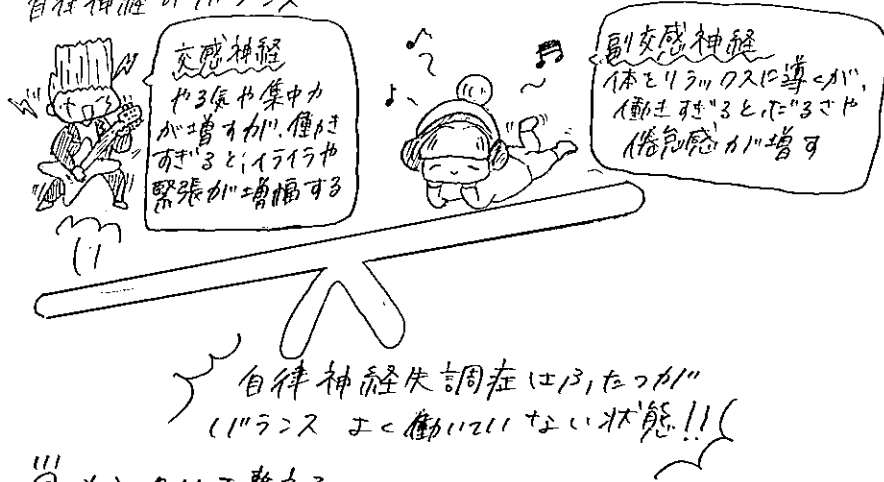 自律神経のバランス
交感神経
やる気や集中力
が増すが、働き
すぎると、イライラや
緊張が増幅する
副交感神経
体をリラックスに導くが、
働きすぎると、だるさや
倦怠感が増す
自律神経失調症はふたつが
バランスよく働いていない状態!!